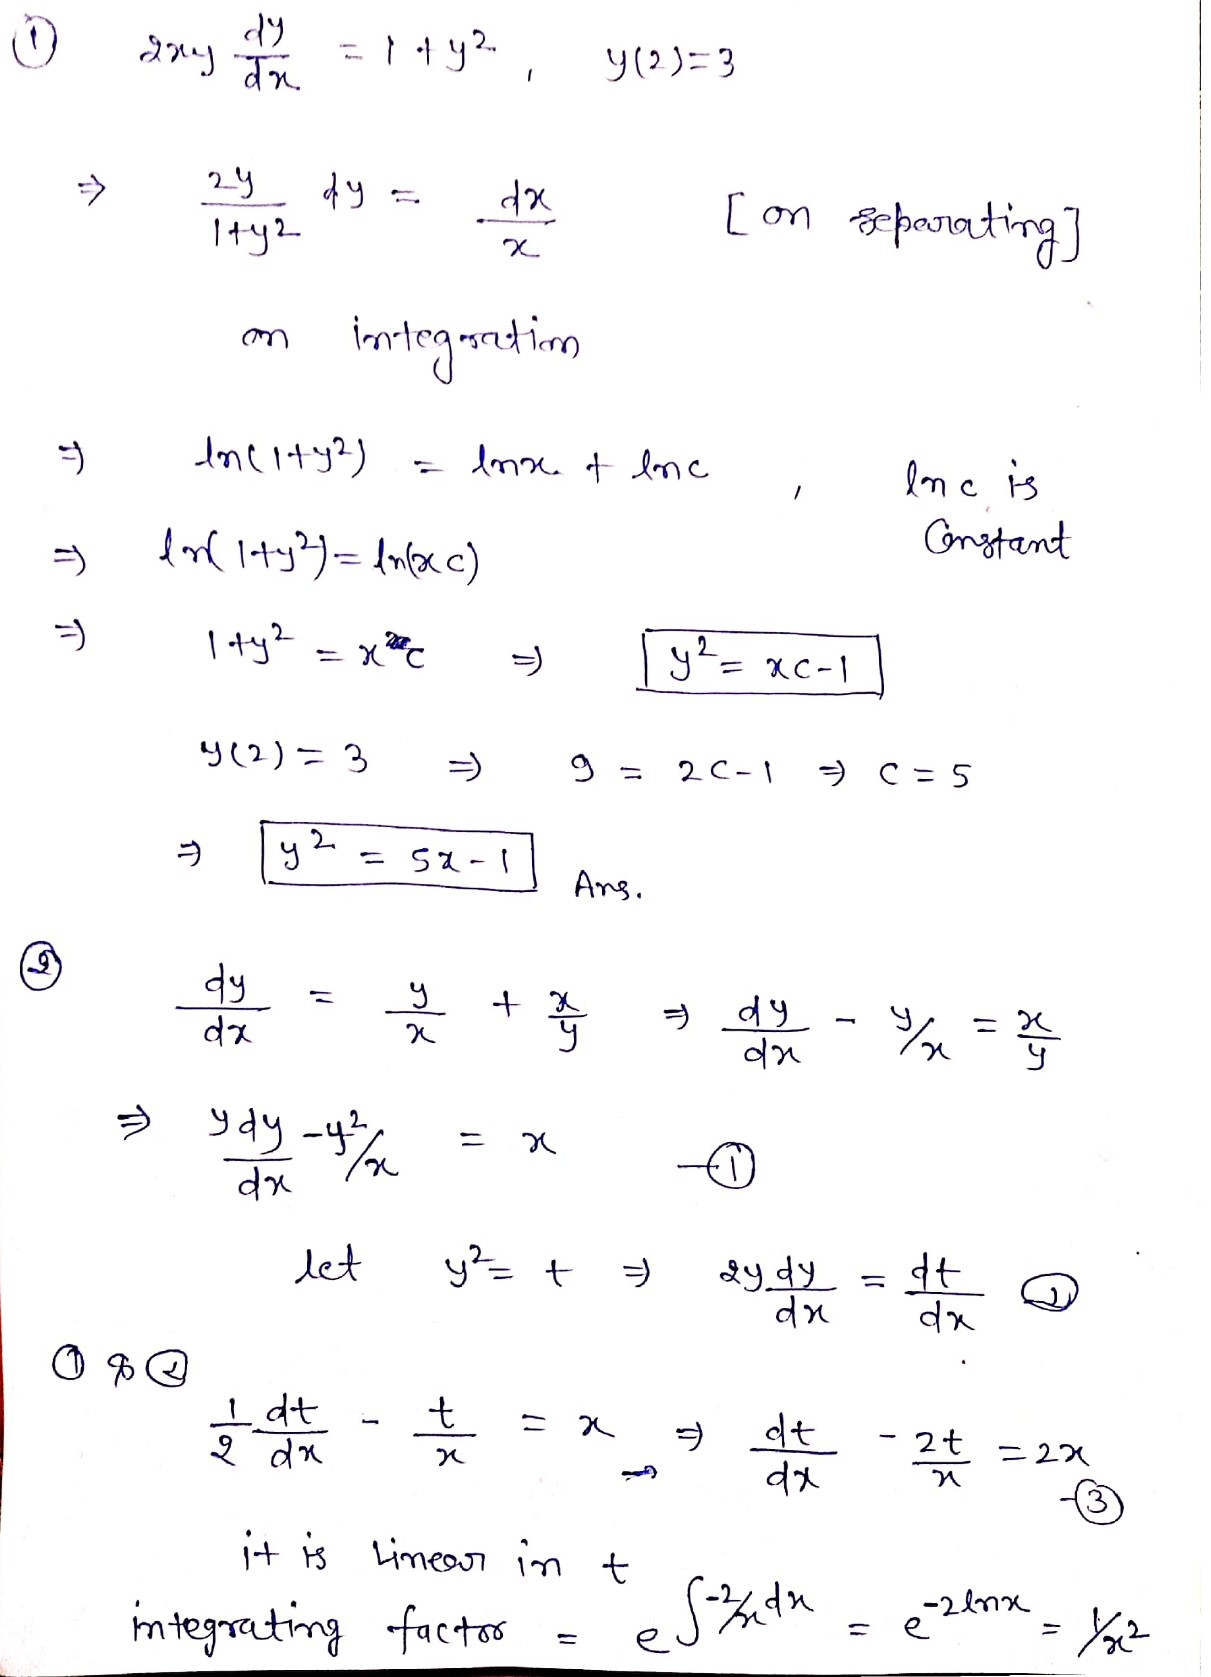 ① 2xy dy/dx = 1 + y², y(2)=3
⇒ 2y/1+y² dy = dx/x [on separating]
on integration
⇒ ln(1+y²) = lnx + lnc , lnc is
Constant
⇒ ln(1+y²) = ln(xc)
⇒ 1+y² = xc ⇒ y² = xc-1
y(2) = 3 ⇒ 9 = 2c-1 ⇒ c = 5
⇒ y² = 5x-1 Ans.
② dy/dx = y/x + x/y ⇒ dy/dx - y/x = x/y
⇒ ydy/dx - y²/x = x —①
let y² = t ⇒ 2ydy/dx = dt/dx ②
① & ②
1/2 dt/dx - t/x = x ⇒ dt/dx - 2t/x = 2x
-③
it is Linear in t
integrating factor = e^∫-2/x dx = e^-2lnx = 1/x²